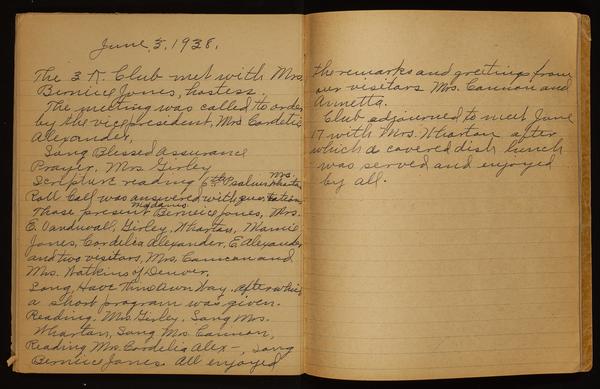 June, 3, 1938.
The 3 K. Club met with Mrs
Bernice Jones, hostess.
The meeting was called to order
by the vice president, Mrs Cordelia
Alexander,
Song Blessed Assurance
Prayer, Mrs Girley
Scripture reading 6th Psalms Mrs. Wharton
Roll Call was answered with quotations
Those present Madams Berniece Jones, Mrs.
E. Vanduvall, Girley, Wharton, Mamie
Jones, Cordelia Alexander, E. Alexander
and two visitors, Mrs. Cannon and
Mrs. Watkins of Denver.
Song, Have Thine Own Way, after which
a short program was given.
Reading, Mrs Girley, Song Mrs.
Wharton, Song Mrs. Cannon,
Reading Mrs. Cordelia Alex-, Song
Berniece Jones. All enjoyed
the remarks and greetings from
our visitors Mrs. Cannon and
Annetta.
Club adjourned to meet June
17 with Mrs. Wharton after
which a covered dish lunch
was served and enjoyed
by all.